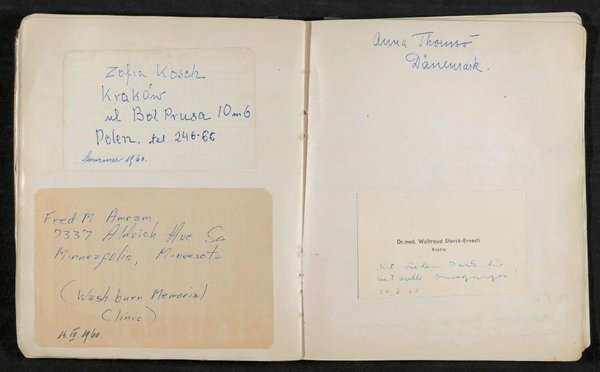 Zofia Kosch
Kraków
ul Bol Prusa 10 m 6
Polen. tel. 246-66
Sommer 1960.
Fred M. Amram
7337 Aldrich Ave So
Minneapolis, Minnesota
(Washburn Memorial
Clinic)
14. VII. 1960.
Anna Thomsö
Dänemark.
Dr. med. Waltraud Storck-Ernesti
Ärztin
Mit vielem Dank für
wertvolle Anregungen!
61